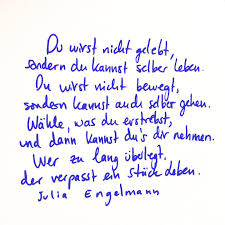 Du wirst nicht gelebt,
sondern du kannst selber leben.
Du wirst nicht bewegt,
sondern kannst auch selber gehen.
Wähle, was du erstrebst,
und dann kannst du's dir nehmen.
Wer zu lang überlegt,
der verpasst ein Stück daben.
Julia Engelmann